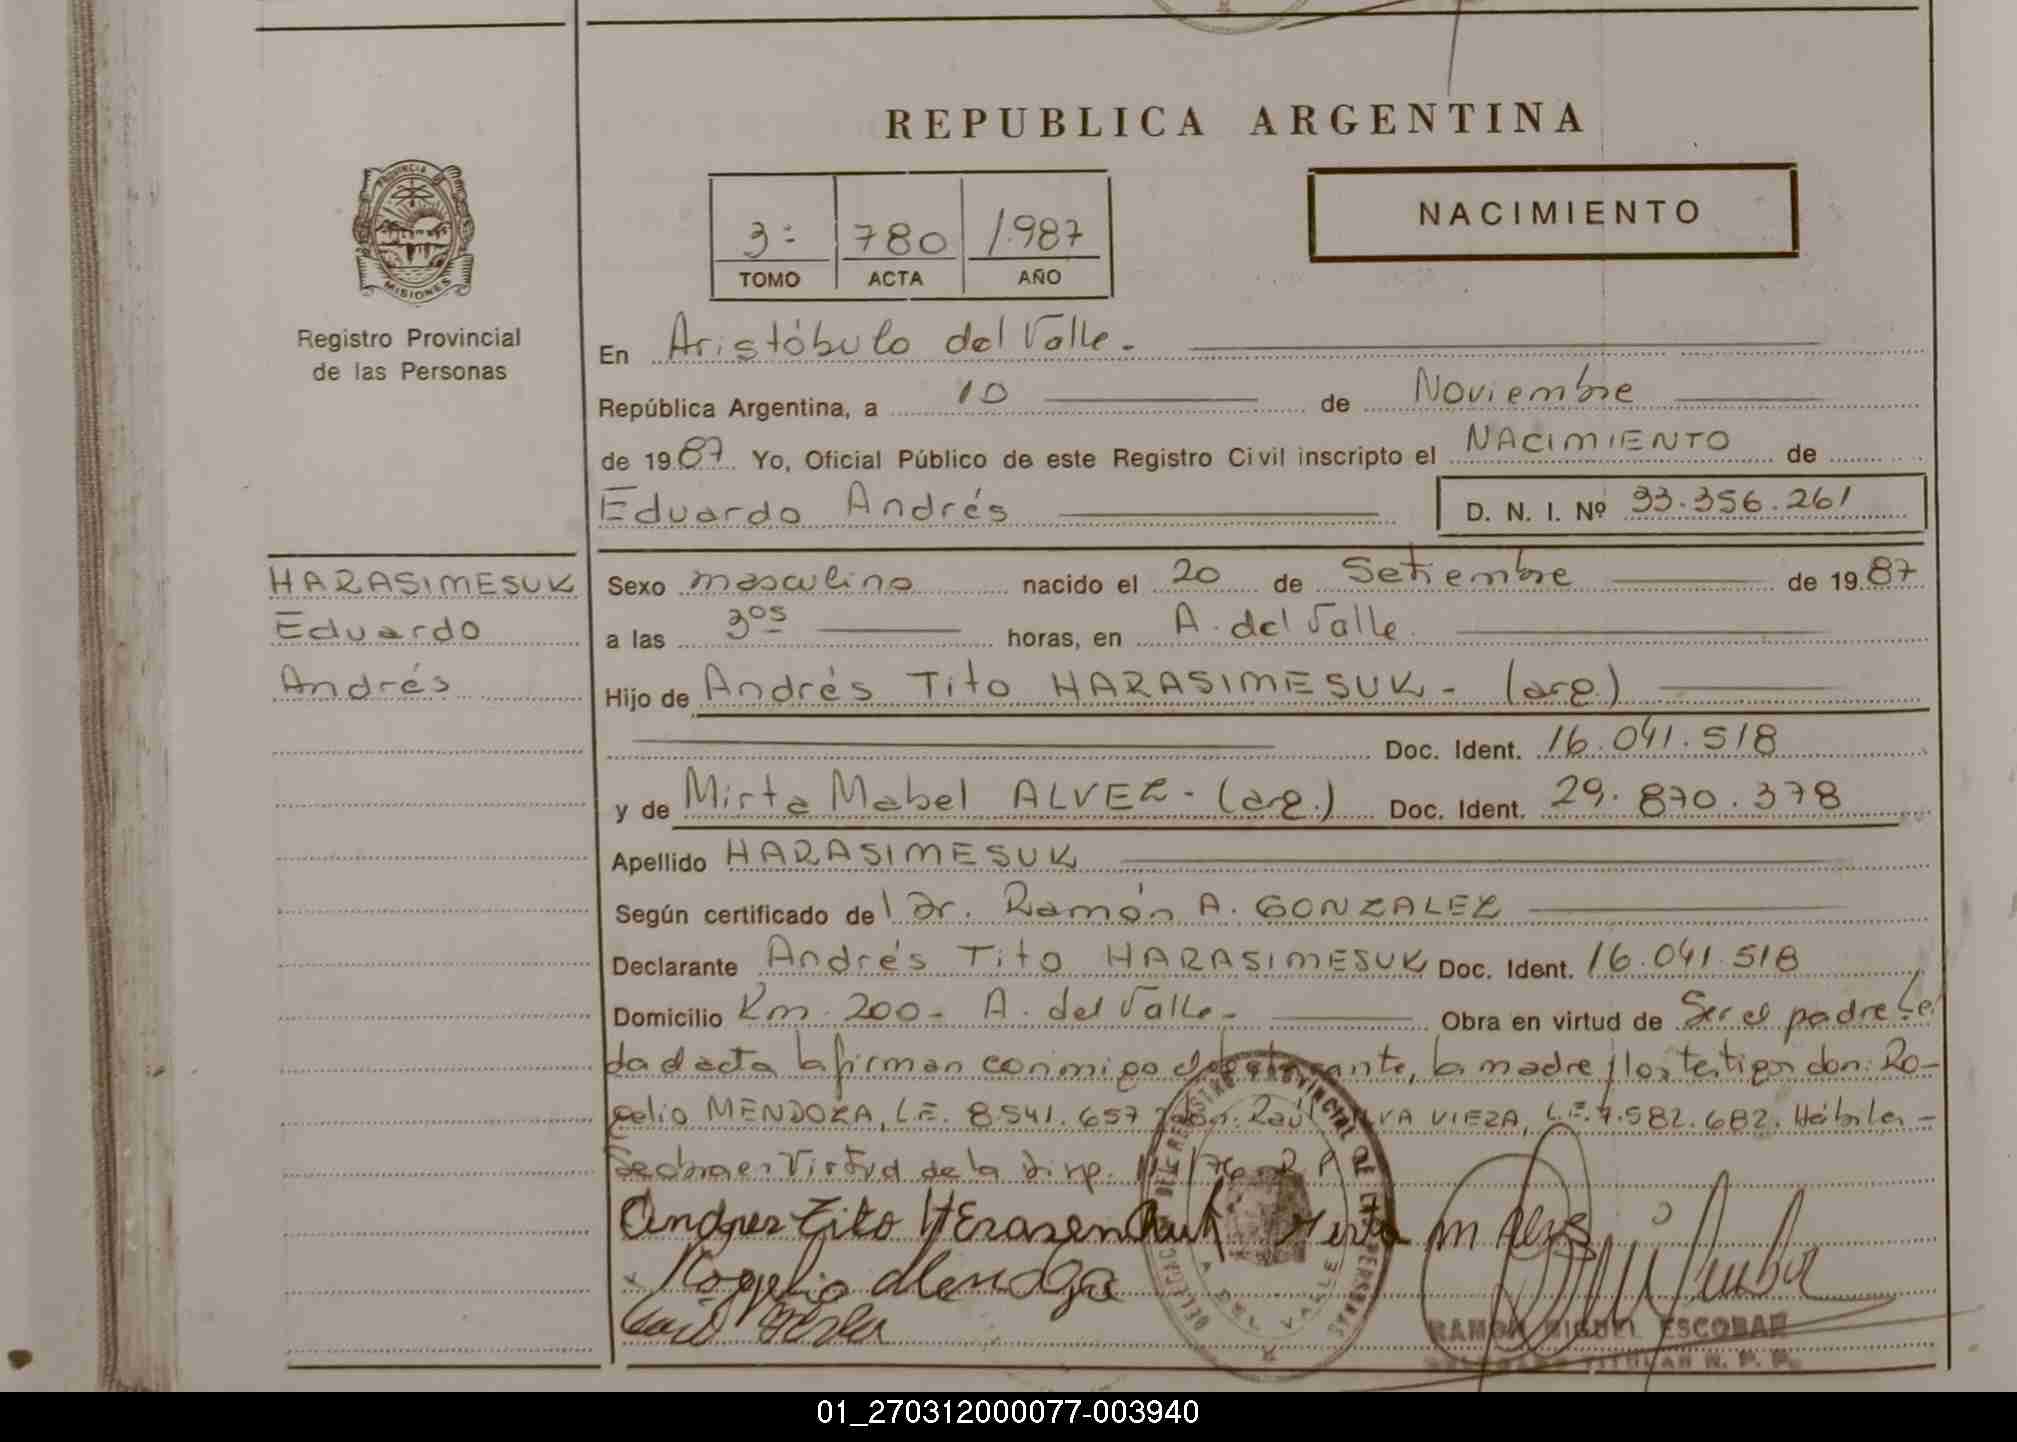 REPUBLICA ARGENTINA
PROVINCIA DE
MISIONES
Registro Provincial
de las Personas
3º
780
1.987
TOMO
ACTA
AÑO
NACIMIENTO
En Aristóbulo del Valle.-
República Argentina, a 10 de Noviembre
de 1987 Yo, Oficial Público de este Registro Civil inscripto el NACIMIENTO de
Eduardo Andrés
D. N. I. Nº 33.356.261
HARASIMESUK
Eduardo
Andrés
Sexo masculino nacido el 20 de Setiembre de 1987
a las 3 05 horas, en A. del Valle.
Hijo de Andrés Tito HARASIMESUK - (arg.)
Doc. Ident. 16.041.518
y de Mirta Mabel ALVEZ - (arg.) Doc. Ident. 29.870.378
Apellido HARASIMESUK
Según certificado del Dr. Ramón A. GONZALEZ
Declarante Andrés Tito HARASIMESUK Doc. Ident. 16.041.518
Domicilio Km. 200- A. del Valle.- Obra en virtud de Ser el padre Leí
da el acta la firman conmigo el declarante, la madre y los testigos don: Ro-
gelio MENDOZA, L.E. 8.541.657 y don: Raúl VIEZA, L.E. 7.582.682. Hábiles -
Se obra en Virtud de la Disp. /76
Andres Tito
Rogelio Mendoza
DELEGACION DEL REGISTRO PROVINCIAL DE LAS PERSONAS
A. DEL VALLE
RAMON MIGUEL ESCOBAR
DELEGADO TITULAR R. P. P.
01_270312000077-003940